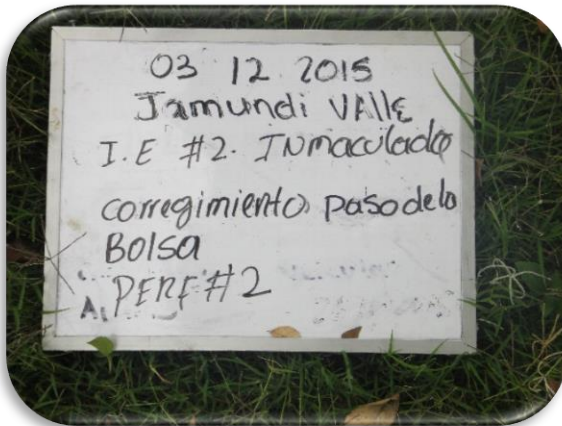 03 12 2015
Jamundi VAllE
I.E #2. INmaculada
corregimiento paso de la
Bolsa
PERF #2